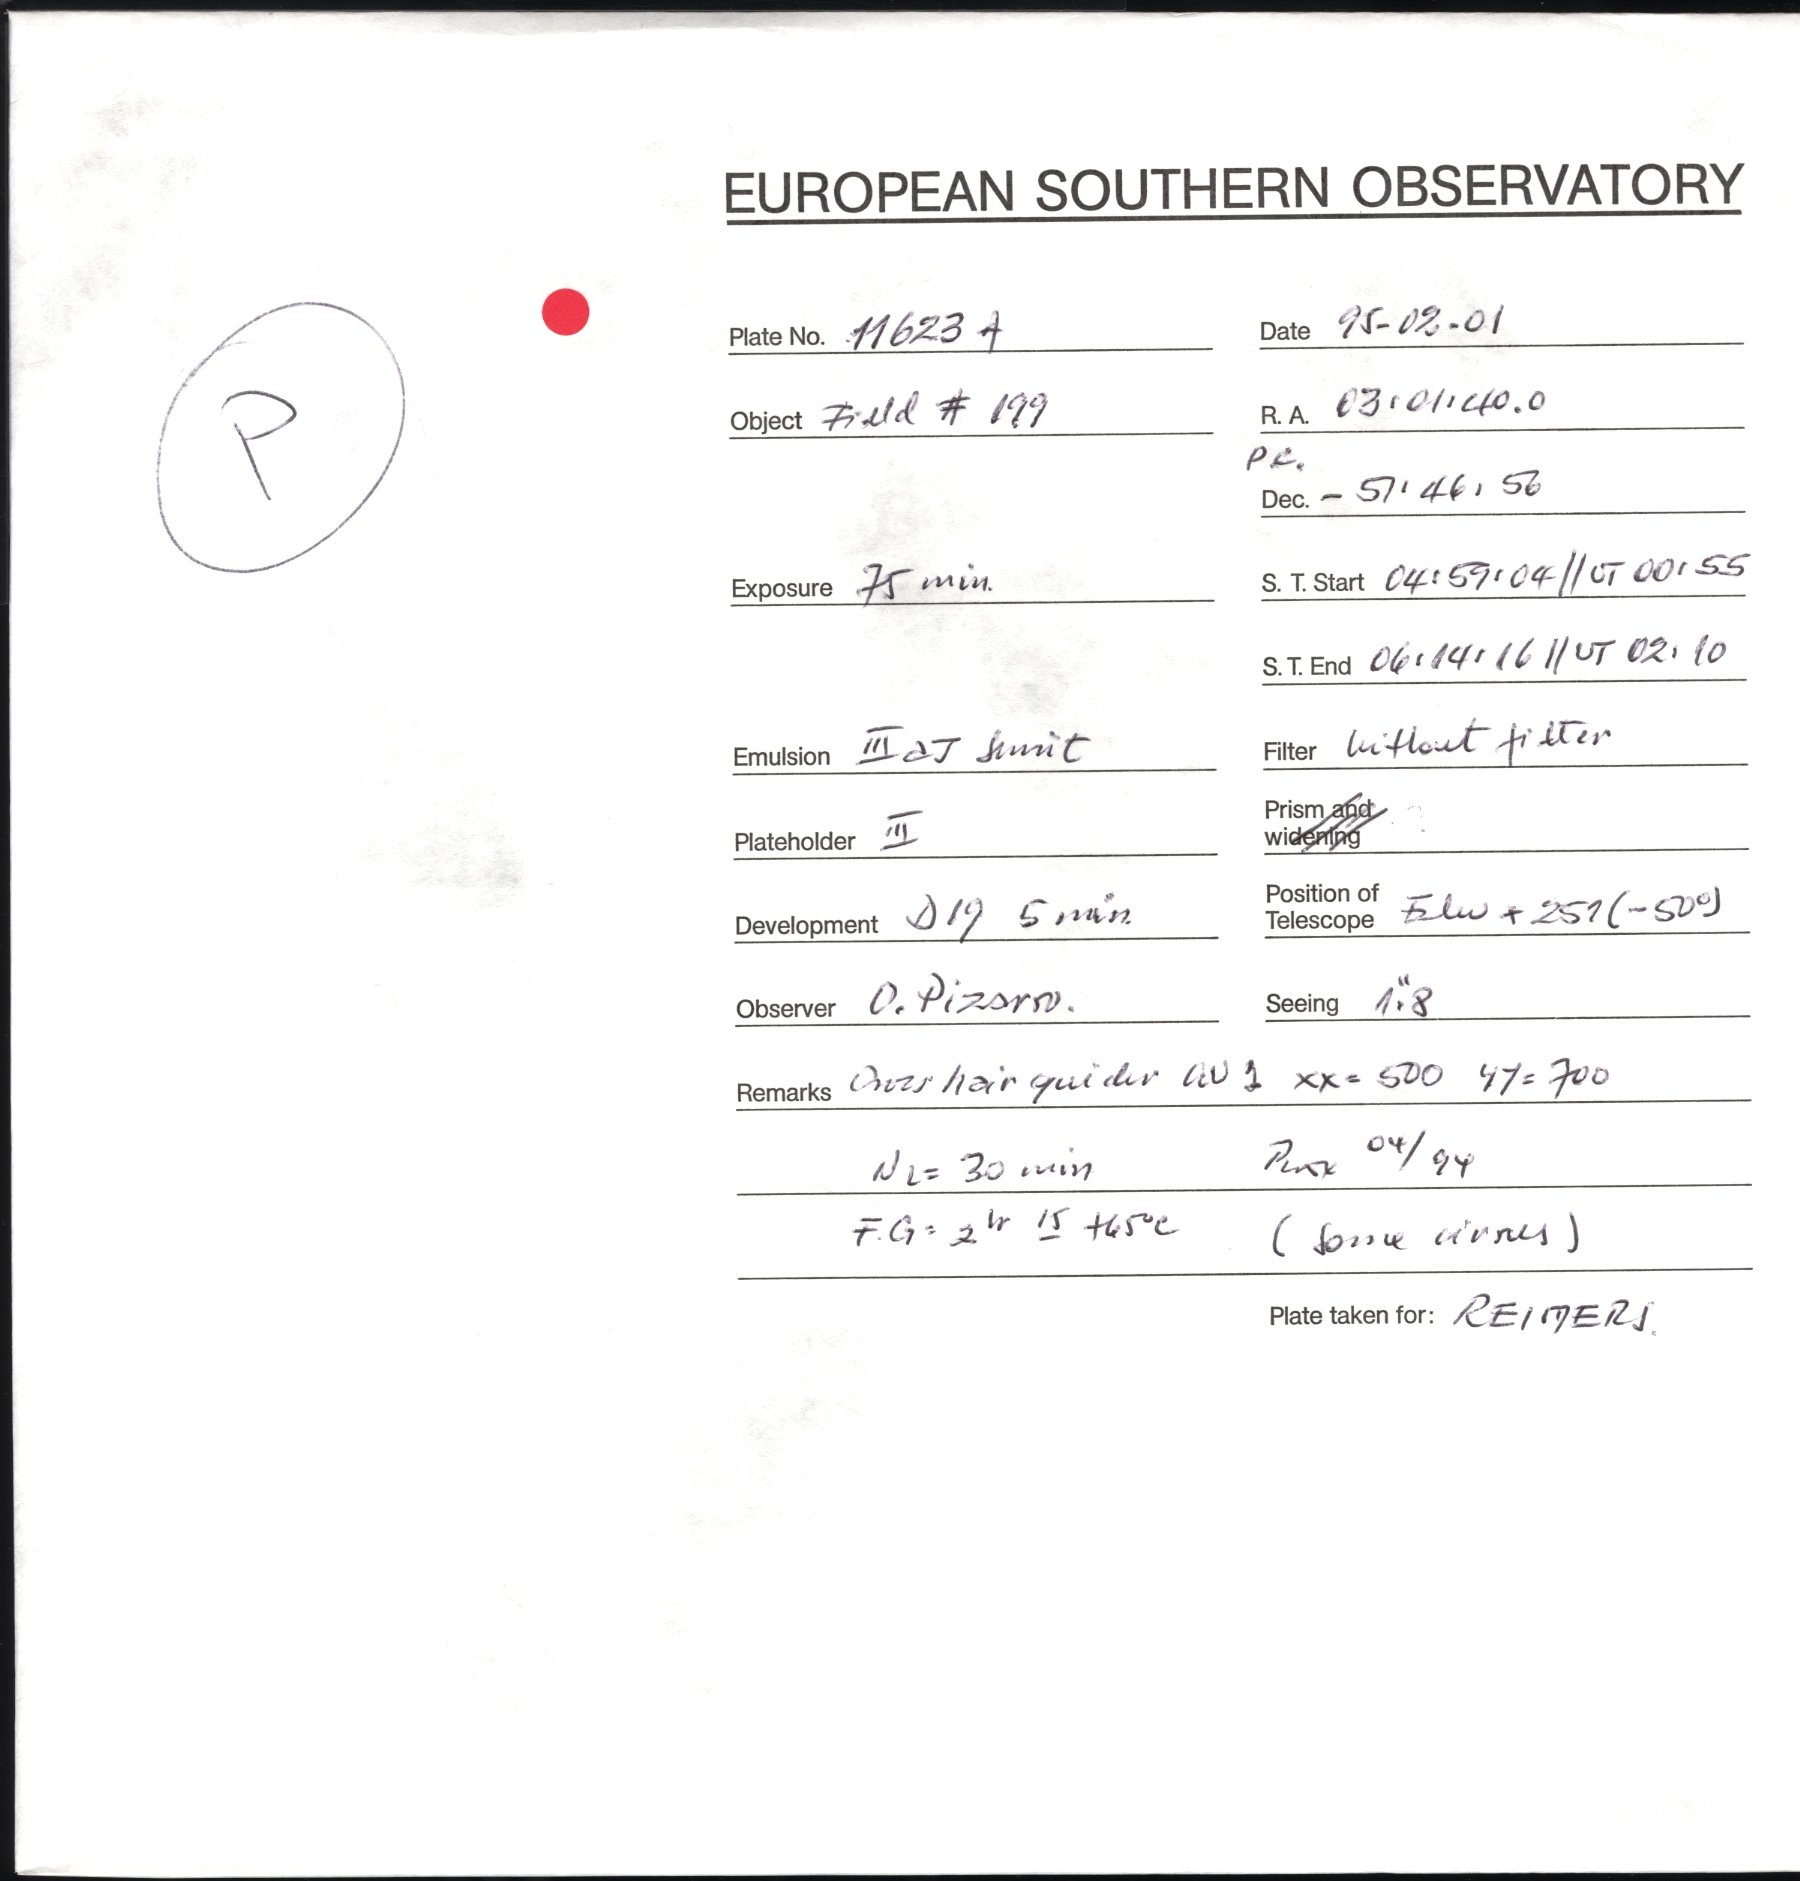 EUROPEAN SOUTHERN OBSERVATORY
P
Plate No. 11623 A
Date 95-02-01
Object Field # 199
R. A. 03:01:40.0
Dec. - 57:46:56
Exposure 75 min.
S. T. Start 04:59:04 // UT 00:55
S. T. End 06:14:16 // UT 02:10
Emulsion III aJ
Filter without filter
Plateholder III
Prism and widening
Development D19 5 min
Position of Telescope + 257 (-50°)
Observer O. Pizarro.
Seeing 1".8
Remarks Cross hair guider xx = 500 yy = 700
N2 = 30 min 04/94
F.G = 2hr 15 +65°C (Some cirrus)
Plate taken for: REIMERS.